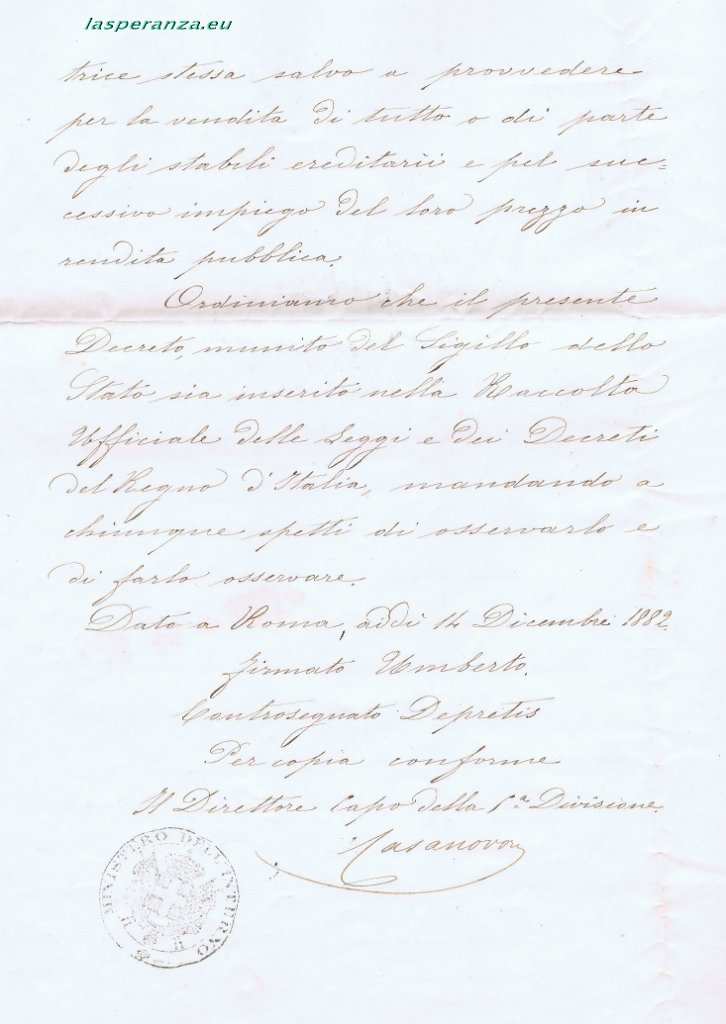 lasperanza.eu
trice stessa salvo a provvedere
per la vendita di tutto o di parte
degli stabili ereditarii e pel suc=
cessivo impiego del loro prezzo in
rendita pubblica.
Ordiniamo che il presente
Decreto, munito del Sigillo dello
Stato sia inserito nella Raccolta
Ufficiale delle Leggi e dei Decreti
del Regno d'Italia, mandando a
chiunque spetti di osservarlo e
di farlo osservare.
Dato a Roma, addì 14 Dicembre 1882.
firmato Umberto.
Controsegnato Depretis
Per copia conforme
Il Direttore Capo della 5ª Divisione.
Casanova
MINISTERO DELL'INTERNO